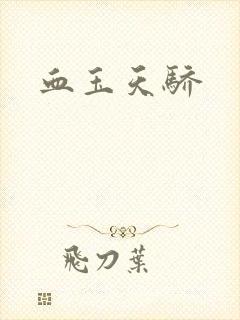 血玉天骄
飛刀葉